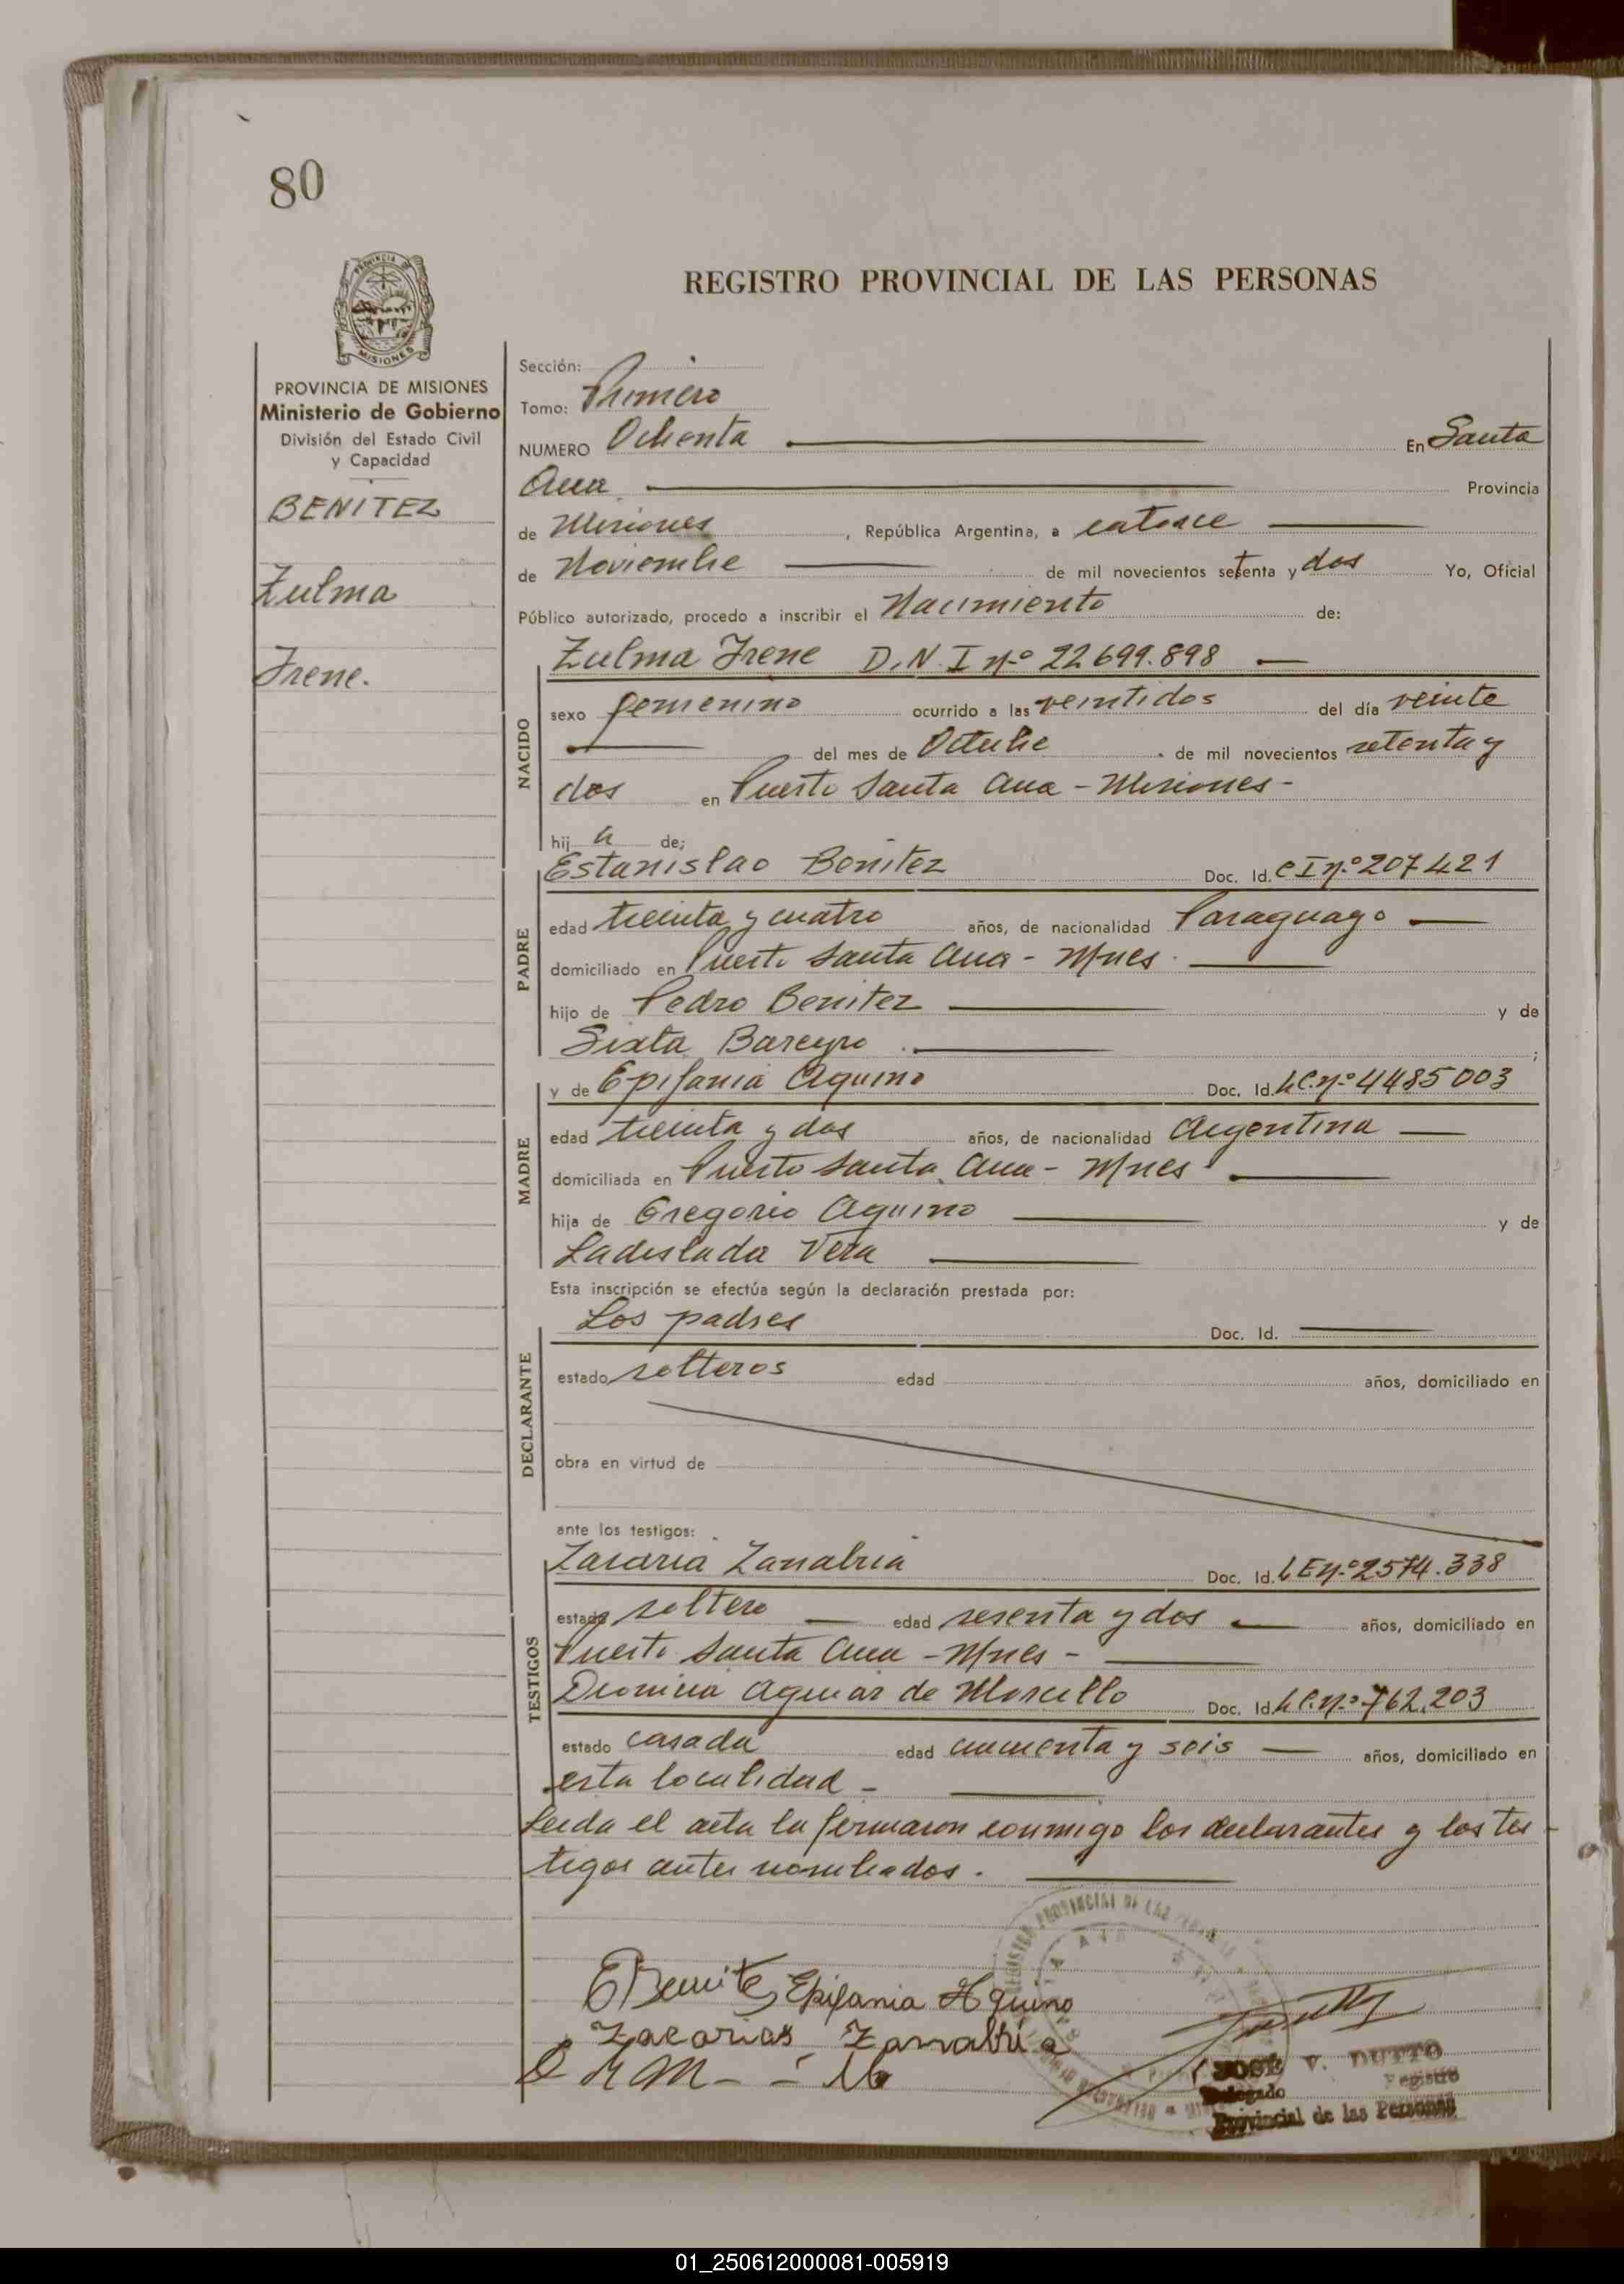 80
REGISTRO PROVINCIAL DE LAS PERSONAS
PROVINCIA DE MISIONES
Ministerio de Gobierno
División del Estado Civil
y Capacidad
BENITEZ
Zulma
Irene.
Sección:
Tomo: Primero
NUMERO Ochenta En Santa
Ana Provincia
de Misiones, República Argentina, a catorce
de Noviembre de mil novecientos setenta y dos Yo, Oficial
Público autorizado, procedo a inscribir el Nacimiento de:
Zulma Irene D.N.I nº 22699.898
NACIDO
sexo femenino ocurrido a las veintidos del día veinte
del mes de Octubre de mil novecientos setenta y
dos en Puerto Santa Ana - Misiones -
hij a de;
PADRE
Estanislao Benitez Doc. Id. C I nº 207421
edad treinta y cuatro años, de nacionalidad Paraguayo
domiciliado en Puerto Santa Ana - Mnes.
hijo de Pedro Benitez y de
Sixta Bareyro ;
MADRE
y de Epifania Aquino Doc. Id. LC. nº 4485003
edad treinta y dos años, de nacionalidad Argentina
domiciliada en Puerto Santa Ana - Mnes
hija de Gregorio Aquino y de
Ladislada Vera
Esta inscripción se efectúa según la declaración prestada por:
DECLARANTE
Los padres Doc. Id.
estado solteros edad años, domiciliado en
obra en virtud de
ante los testigos:
TESTIGOS
Zacaria Zanabria Doc. Id. LE nº 2574.338
estado soltero edad sesenta y dos años, domiciliado en
Puerto Santa Ana - Mnes -
Dionicia Aguiar de Morcillo Doc. Id. LC. nº 762.203
estado casada edad cincuenta y seis años, domiciliado en
esta localidad -
Leida el acta la firmaron conmigo los declarantes y los tes-
tigos antes nombrados.
E Benitez Epifania Aquino
Zacarias Zanabria
JOSE V. DUTTO
Delegado Registro
Provincial de las Personas
01_250612000081-005919